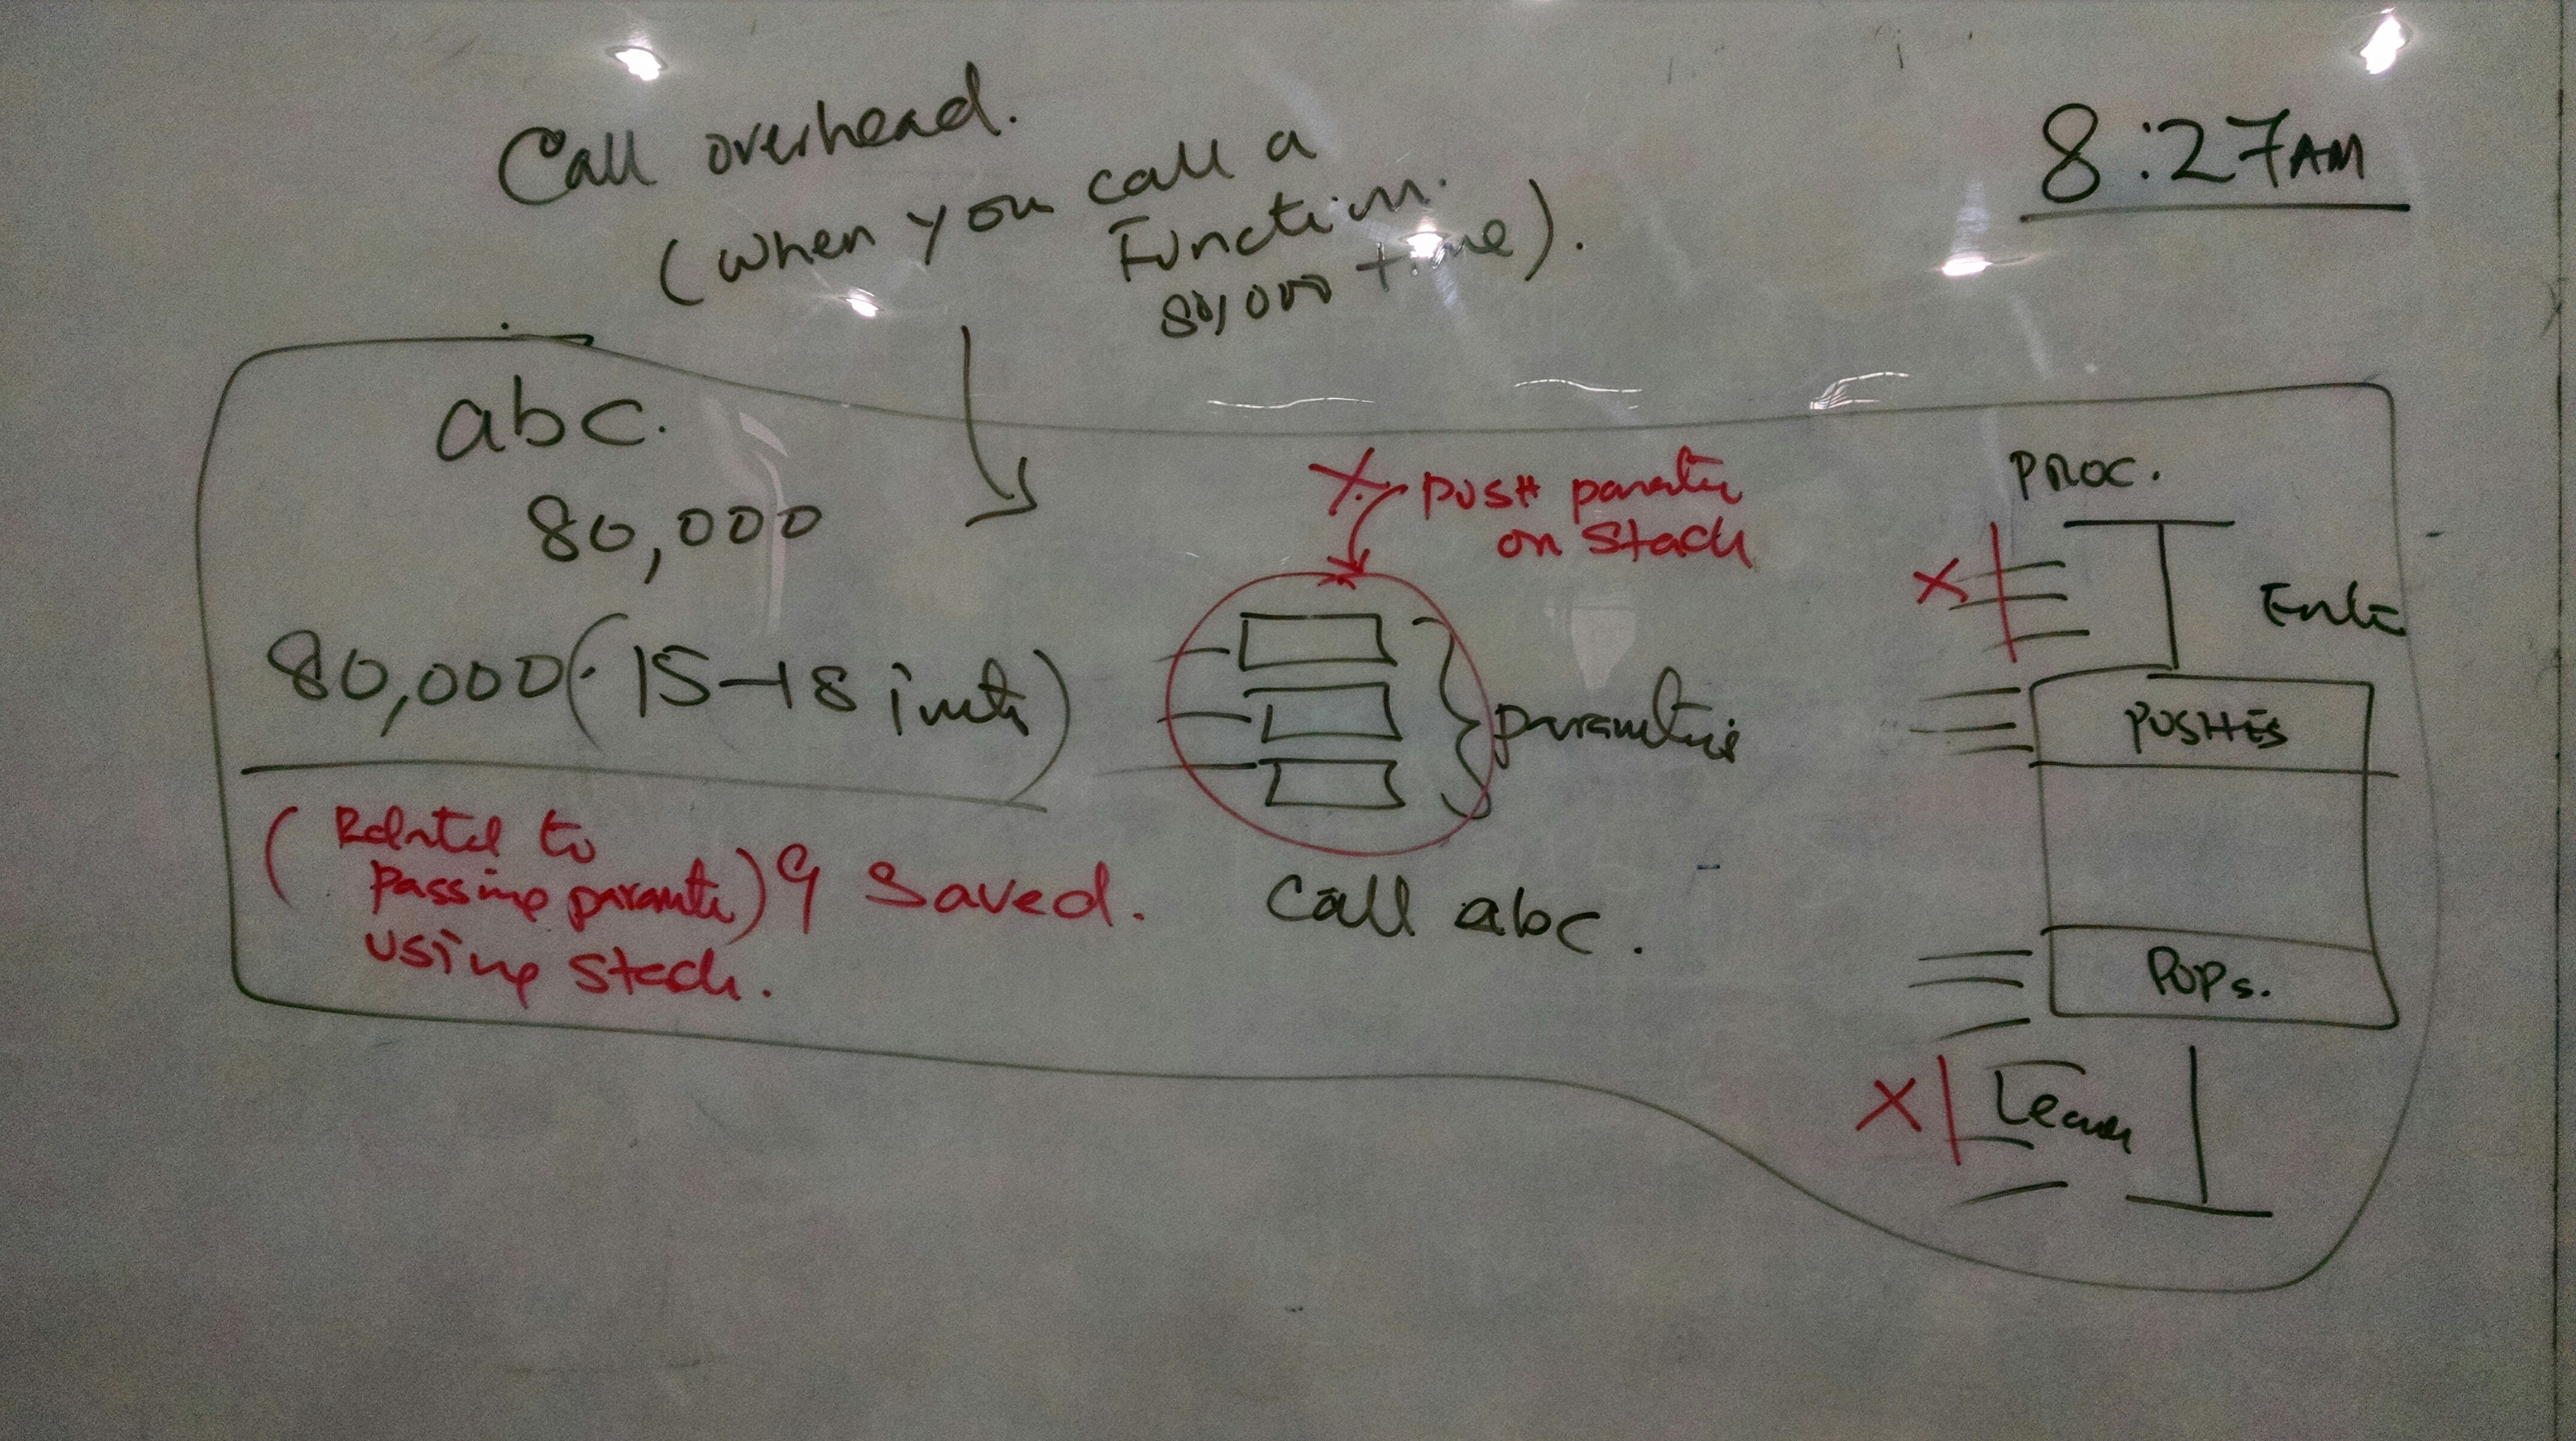 Call overhead.
(when you call a
Function
80,000 time).
8:27AM
abc.
80,000
80,000 (15-18 insts)
(Related to
passing paramete) 9 Saved.
using stack.
X PUSH
on Stack
parameters
Call abc.
PROC.
X
Enter
PUSHES
POPs.
X Leave